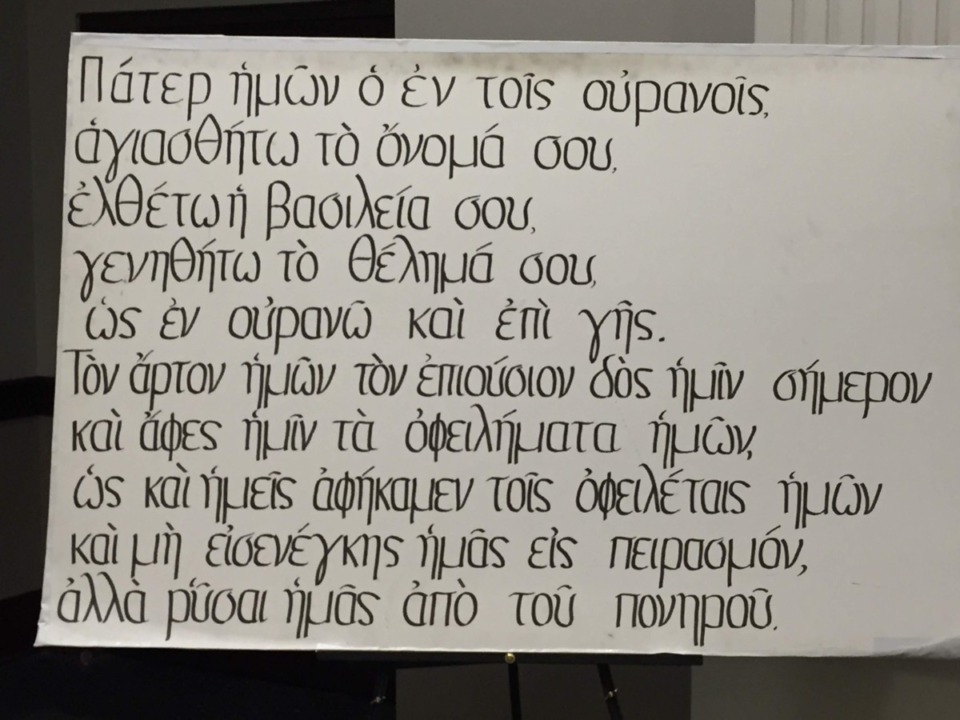 Πάτερ ἡμῶν ὁ ἐν τοῖς οὐρανοῖς,
ἁγιασθήτω τὸ ὄνομά σου,
ἐλθέτω ἡ βασιλεία σου,
γενηθήτω τὸ θέλημά σου,
ὡς ἐν οὐρανῶ καὶ ἐπὶ γῆς.
Τὸν ἄρτον ἡμῶν τὸν ἐπιούσιον δὸς ἡμῖν σήμερον
καὶ ἄφες ἡμῖν τὰ ὀφειλήματα ἡμῶν,
ὡς καὶ ἡμεῖς ἀφήκαμεν τοῖς ὀφειλέταις ἡμῶν
καὶ μὴ εἰσενέγκης ἡμᾶς εἰς πειρασμόν,
ἀλλὰ ρῦσαι ἡμᾶς ἀπὸ τοῦ πονηροῦ.